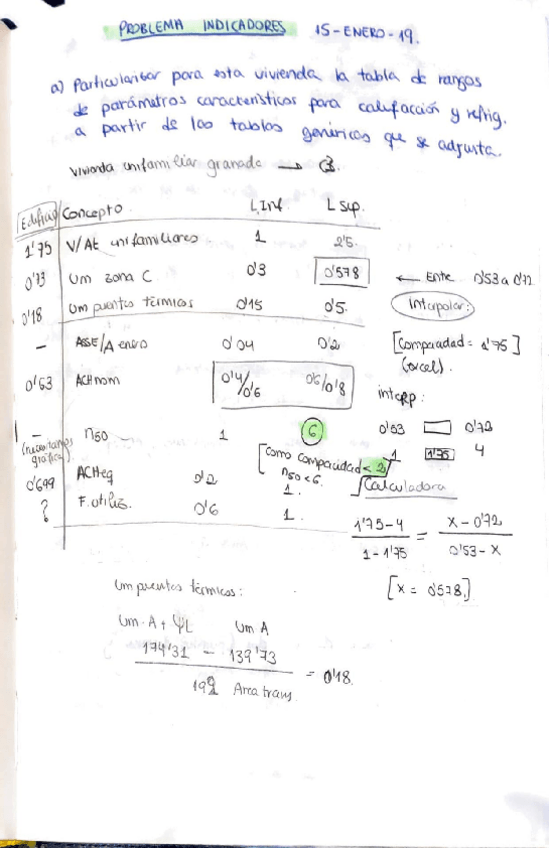 PROBLEMA INDICADORES 15-ENERO-19.
a) Particularizar para esta vivienda la tabla de rangos
de parámetros característicos para calefacción y refrig.
a partir de las tablas genéricas que se adjunta.
Vivienda unifamiliar granada → C3.
Edificio Concepto L.Inf. L Sup.
1'75 V/At unifamiliares 1 2'5
0'73 Um zona C 0'3 0'578 ← Entre 0'53 a 0'72
0'18 Um puentes térmicos 0'15 0'5. Interpolar:
- ASSE/A enero 0'04 0'2 [Compacidad = 1'75]
(excel).
0'63 ACHnom 0'4/0'6 0'6/0'8 interp:
0'53 0'72
- n50 - 1 6 1 1'75 4
(necesitamos gráfica) [Como compacidad < 2]
n50 < 6.
0'699 ACHeq 0'2 1. Calculadora
? F. utiliz. 0'6 1.
1'75-4 / 1-1'75 = x-0'72 / 0'53-x
Um puentes térmicos: [x = 0'578.]
Um·A + ΨL Um A
174'31 - 139'73 / 192 Area trans = 0'18.